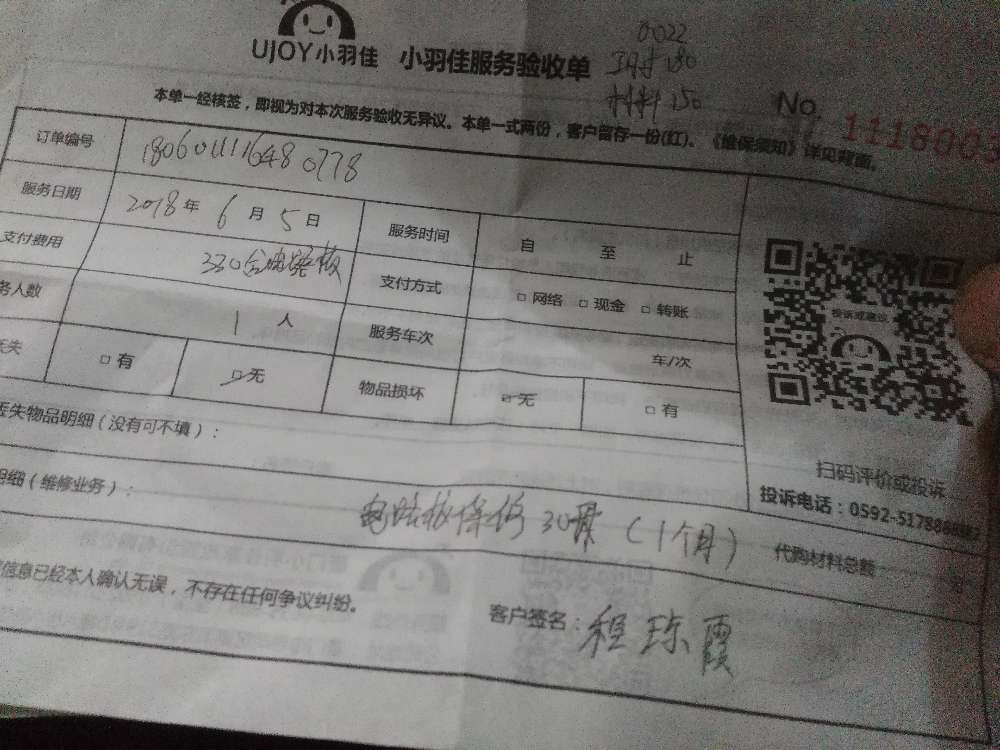 UJOY小羽佳 小羽佳服务验收单
0022
工时 180
材料 150
No. 1118003
本单一经核签，即视为对本次服务验收无异议。本单一式两份，客户留存一份(红)。《维保须知》详见背面。
订单编号 1806011116480778
服务日期 2018年 6月 5日 服务时间 自 至 止
支付费用 330含电路板 支付方式 □ 网络 □ 现金 □ 转账
务人数 1 人 服务车次 车/次
丢失 □ 有 □ 无 物品损坏 □ 无 □ 有
投诉或建议
丢失物品明细（没有可不填）：
扫码评价或投诉
投诉电话：0592-5178
明细（维修业务）： 电路板保修30天（1个月）
代购材料总额 元
信息已经本人确认无误，不存在任何争议纠纷。 客户签名：程琼霞